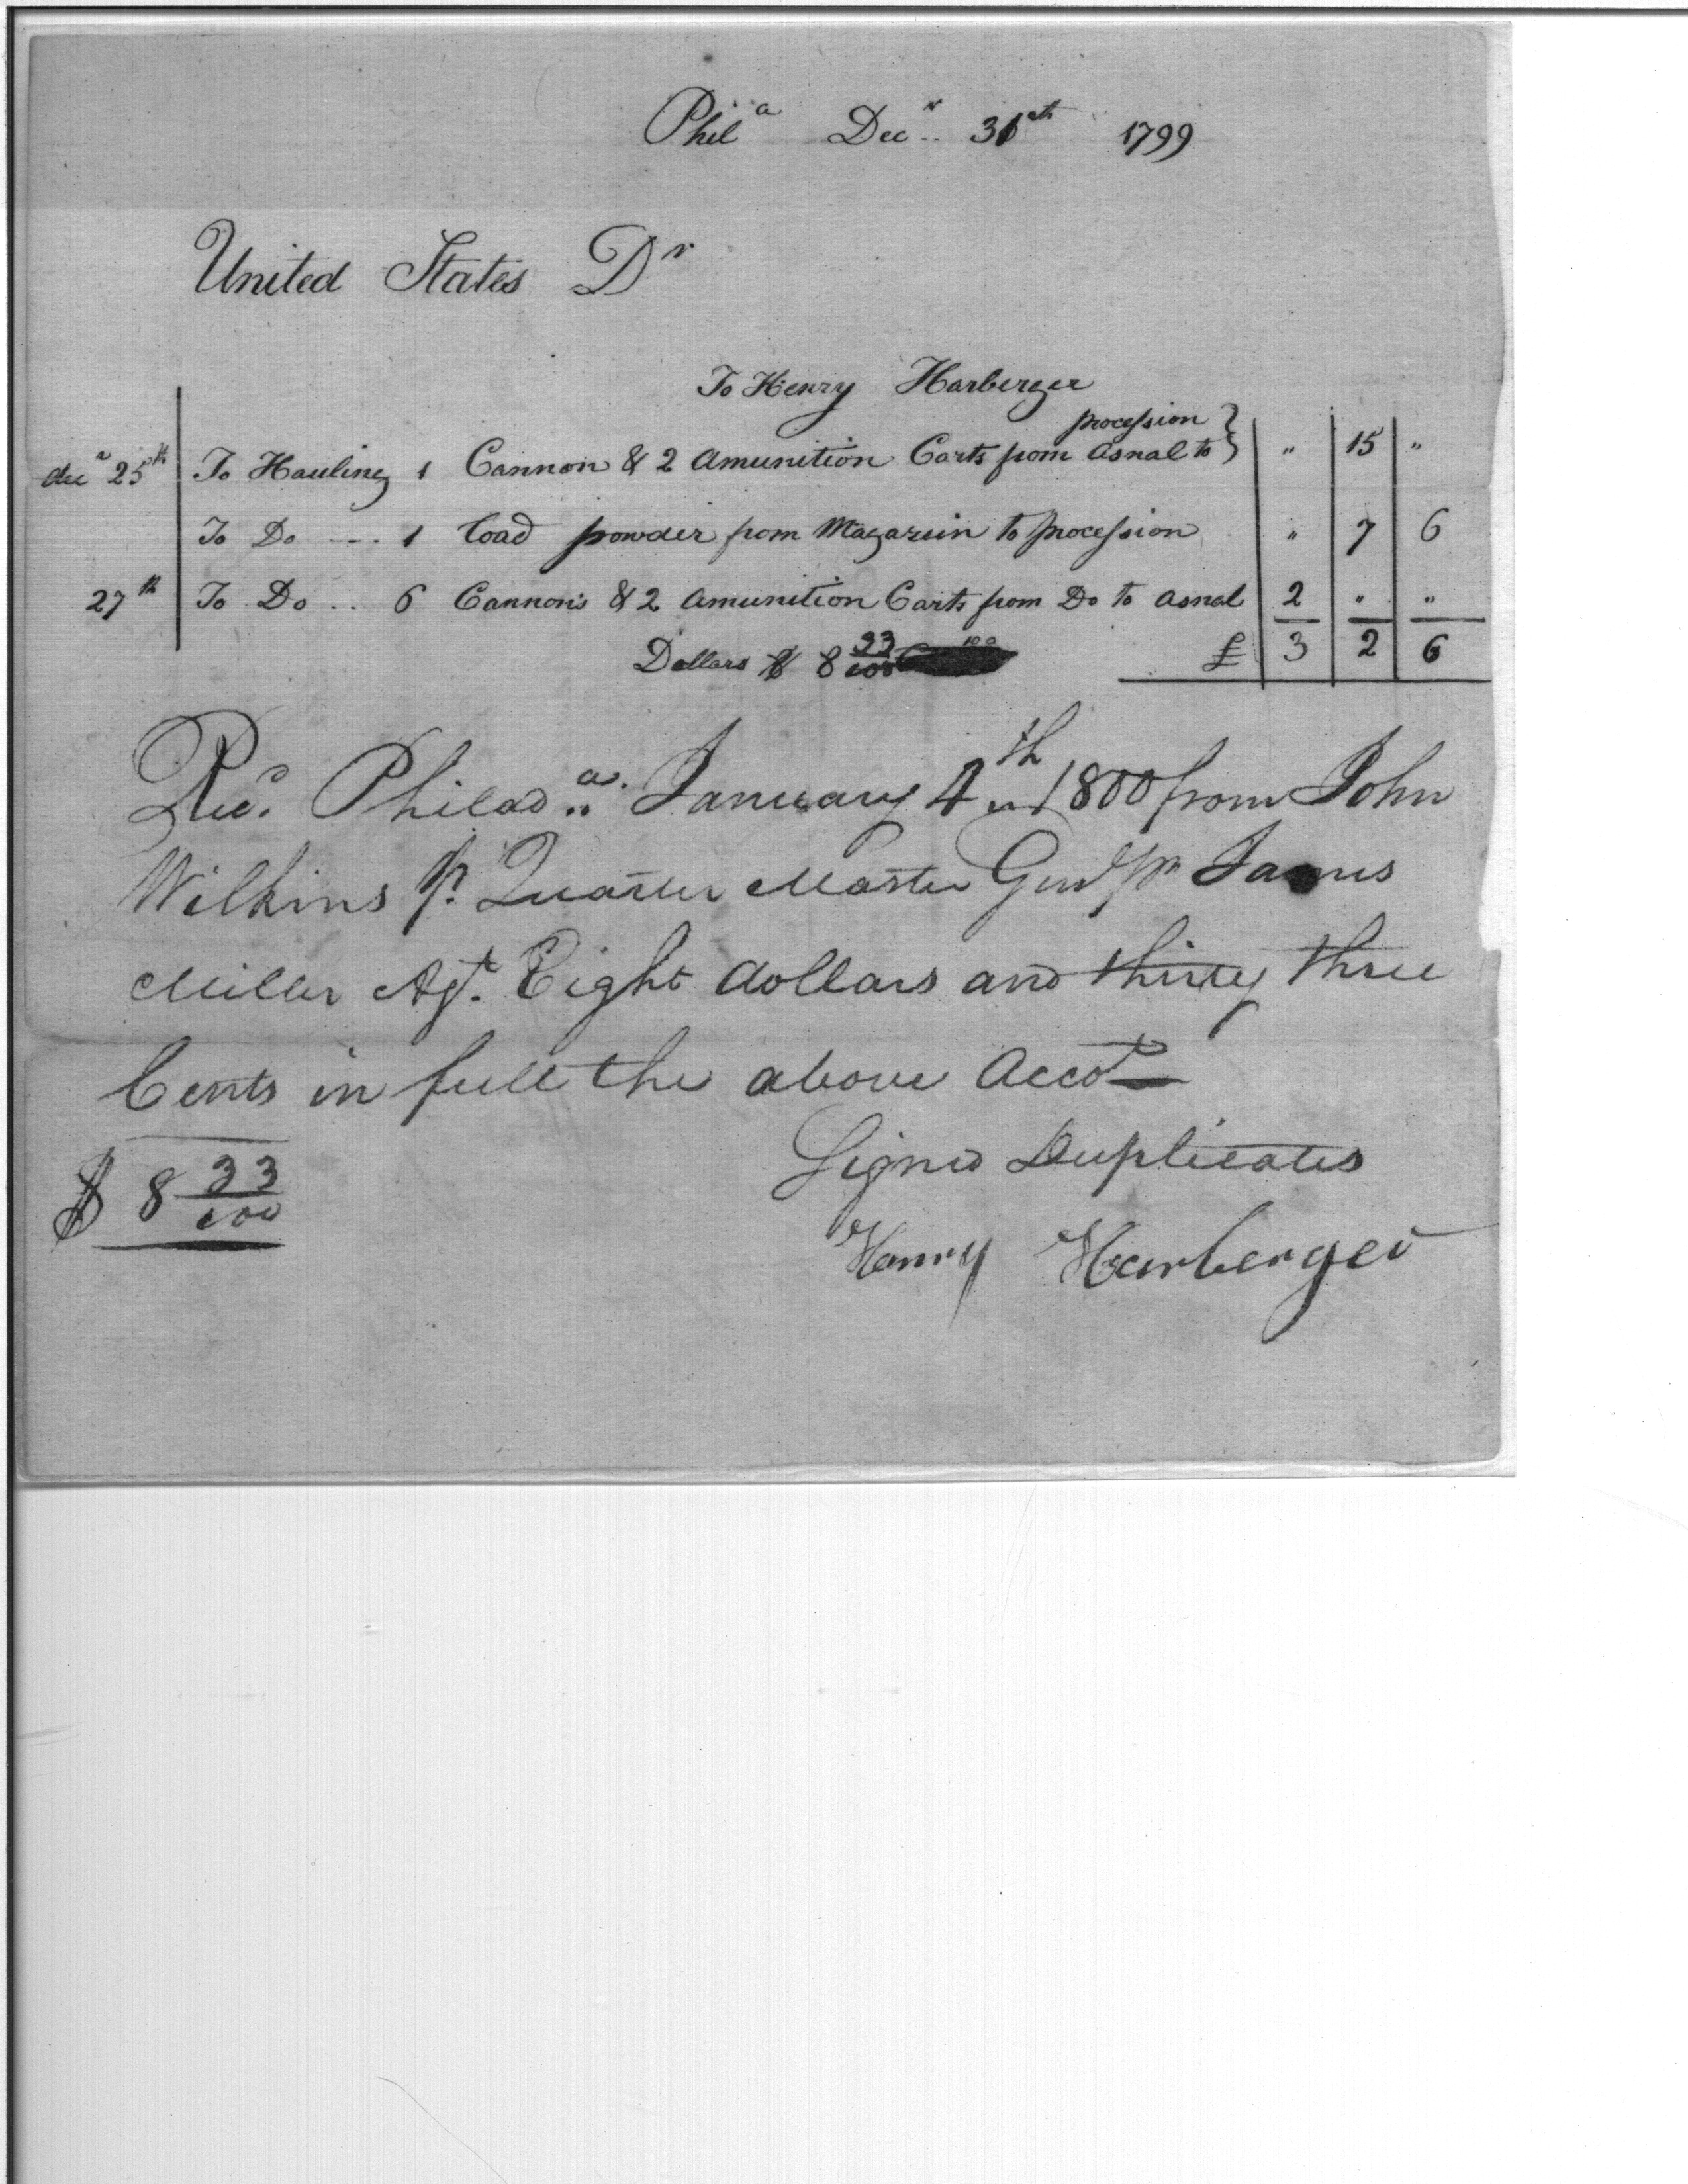 Phil^a Dec^r 31^th 1799
United States D^r
To Henry Harberger
procession }
dec^r 25^th To Hauling 1 Cannon & 2 Amunition Carts from Asnal to } " 15 "
To Do --- 1 load powder from Magazuin to procession " 7 6
27^th To Do .. 6 Cannons & 2 Amunition Carts from Do to Asnal 2 " "
Dollars $ 8 33/100 £ 3 2 6
Rec^d. Philad^a. January 4^th 1800 from John
Wilkins Jr. Quarter Master Gen^l pr James
Miller Agt. Eight dollars and thirty three
Cents in full the above Acco^t
$ 8 33/100 Signed Duplicates
Henry Harberger